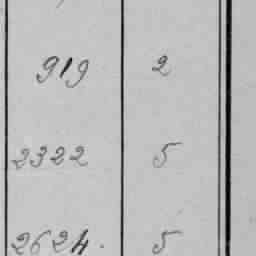 919 2
2322 5
2624. 5